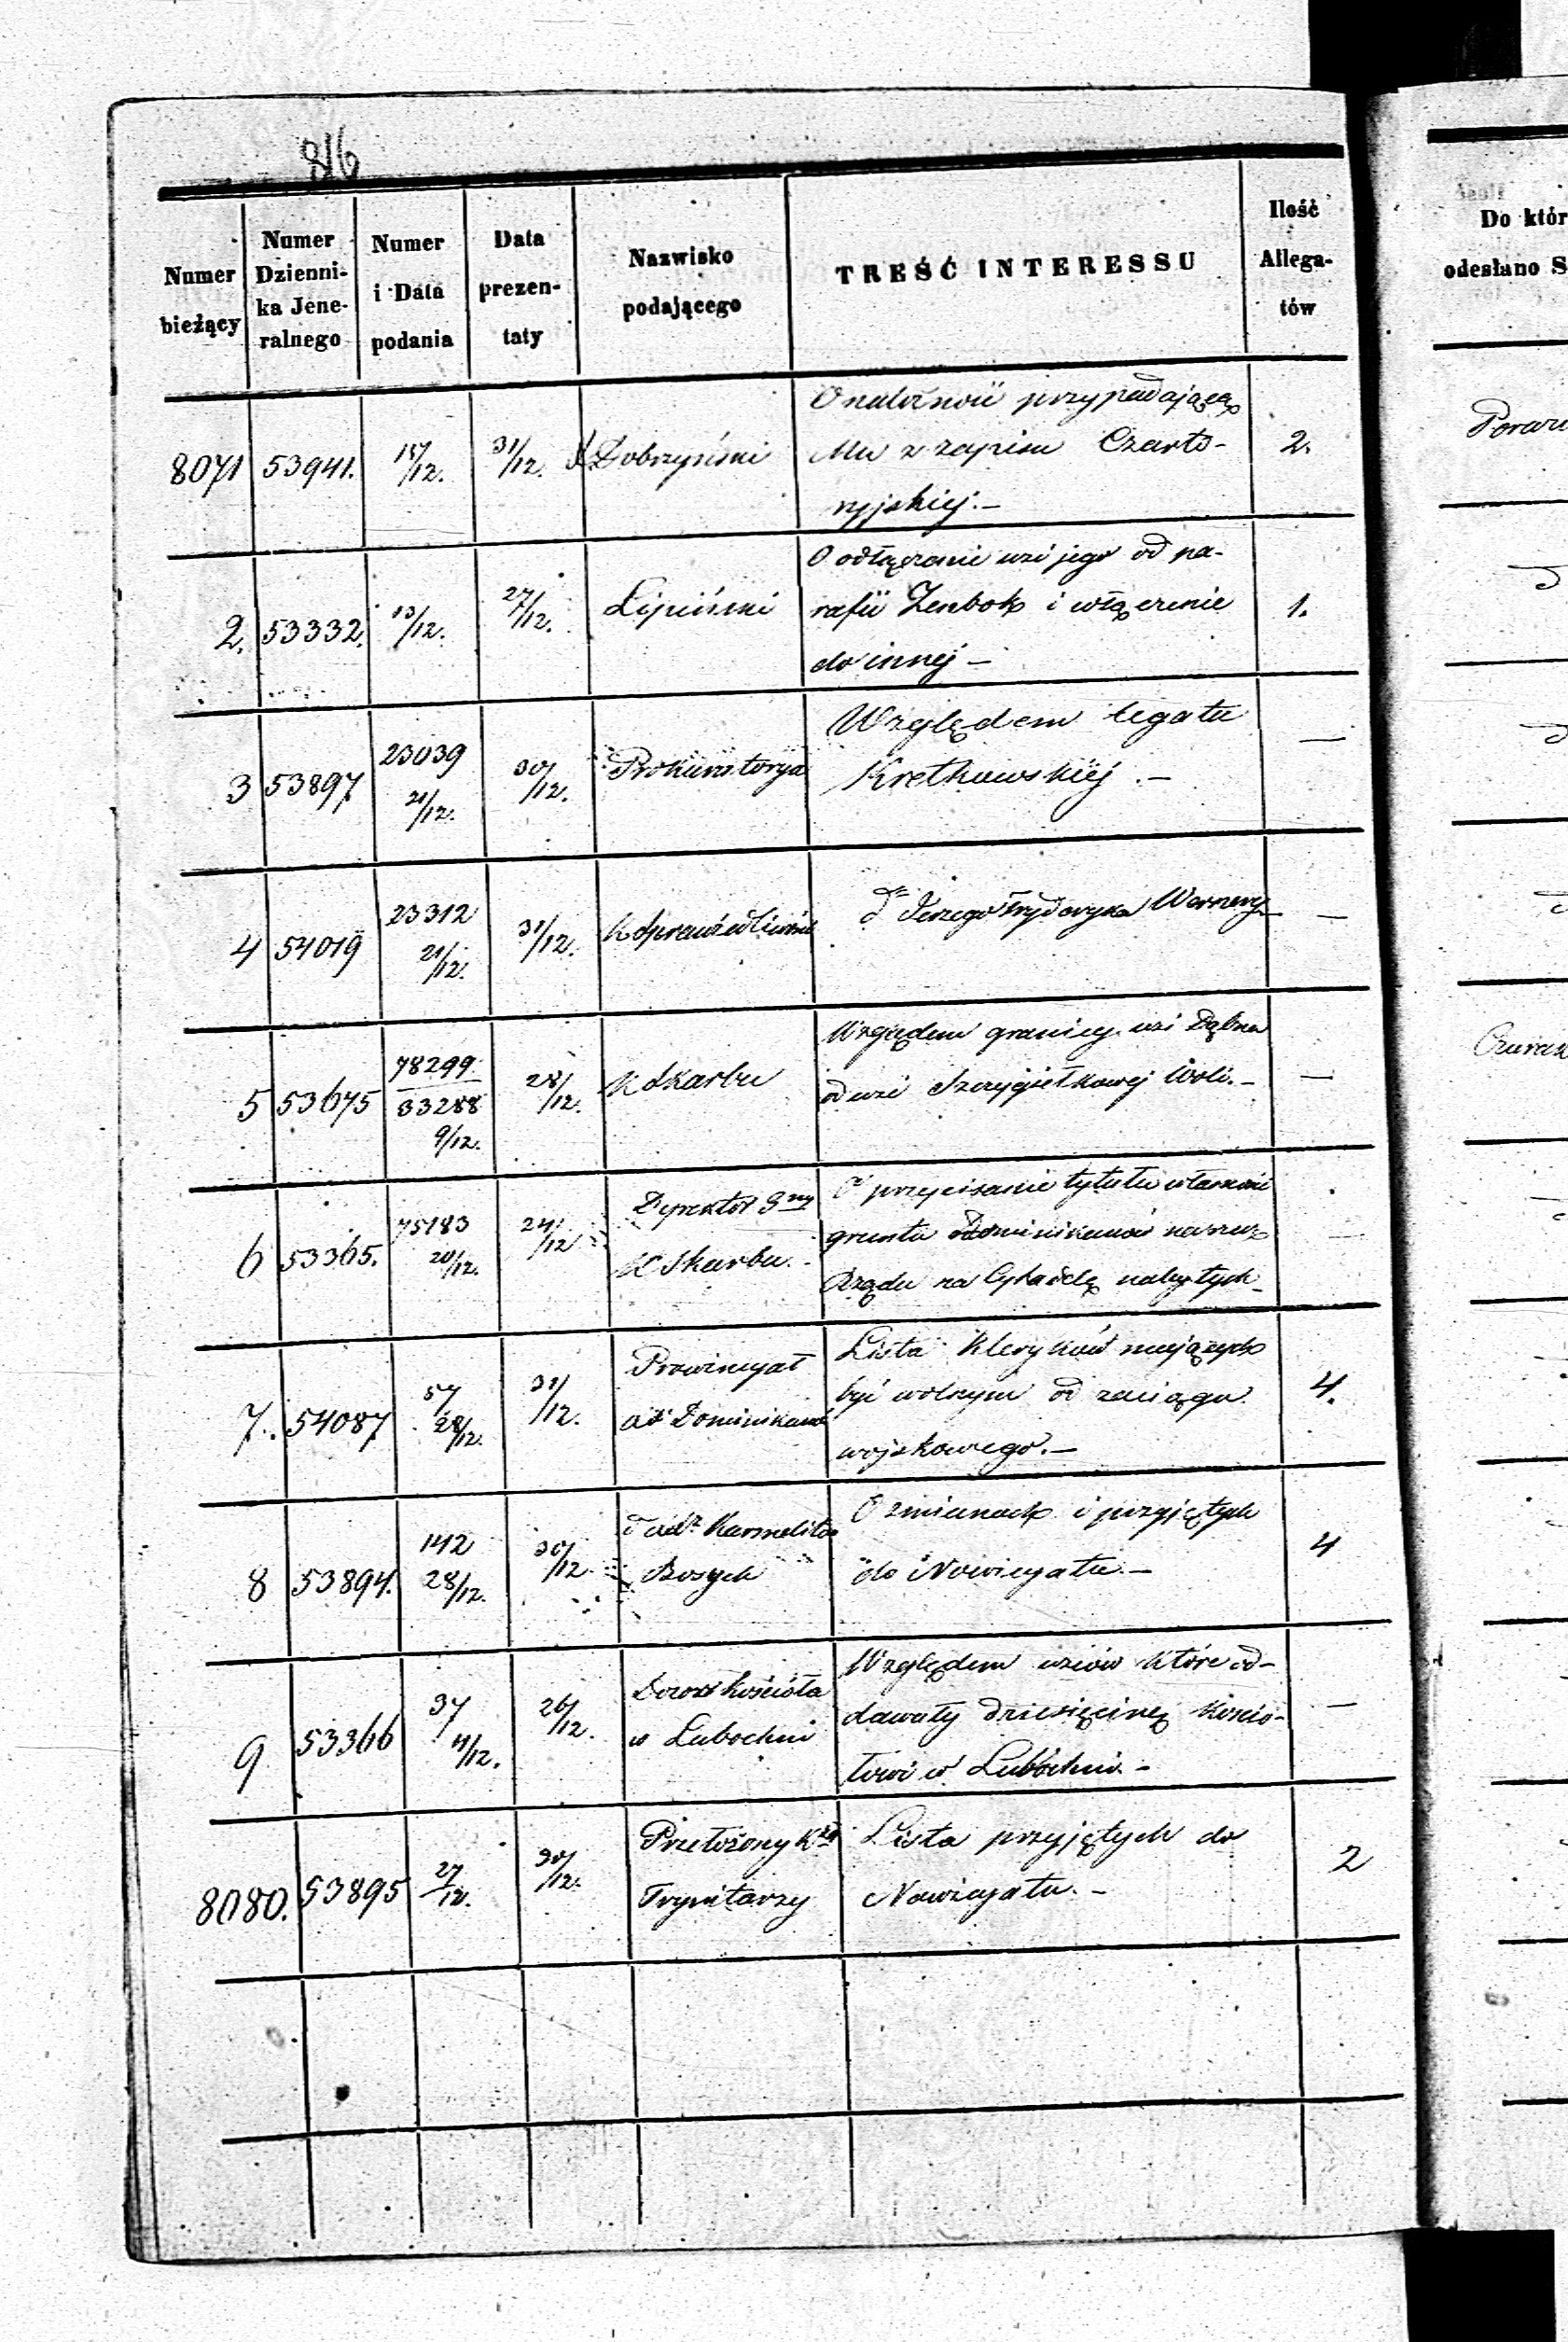 816
Numer bieżący
Numer Dzienni-ka Jene-ralnego
Numer i Data podania
Data prezen-taty
Nazwisko podającego
TREŚĆ INTERESSU
Ilość Allega-tów
Do któr
odesłano S
8071 53941. 15/12. 31/12. X Dobrzyński
O należność przypadającą
Mu z zapisu Czarto-
ryjskiej.—
2.
2. 53332. 13/12. 27/12. Lipiński
O odłączenie wsi jego od pa-
rafii Zenbok i włączenie
do innej —
1.
3 53897 23039 21/12. 30/12. Prokuratorya
Względem legatu
Kretkowskiej.—
—
4 54019 23312 21/12. 31/12. K Sprawiedliwości
d° Jerzego Fryderyka Wernery
—
5 53675 78299 33288 9/12. 28/12. K Skarbu
Względem granicy wsi Dębna
od wsi Szczygiełkowej Woli.—
—
6 53365. 75183 20/12. 24/12
Dyrektor Gny
K Skarbu.
O przepisanie tytułu własności
gruntu Dominikanów na rzecz
Rządu na Cytadelę nabytych
7. 54087 57 28/12. 31/12.
Prowincyał
Dominikanów
Lista Kleryków mających
być wolnym od zaciągu
wojskowego.—
4.
8 53894. 142 28/12. 30/12.
Karmelitów
Bosych
O zmianach i przyjętych
do Nowicyatu.—
4
9 53366 37 11/12. 26/12.
Dozór Kościoła
w Lubochni
Względem wsiów które od-
dawały dziesięcinę Kościo-
łowi w Lubochni.—
—
8080. 53895 27/12. 30/12.
Przełożony
Trynitarzy
Lista przyjętych do
Nowicyatu.—
2